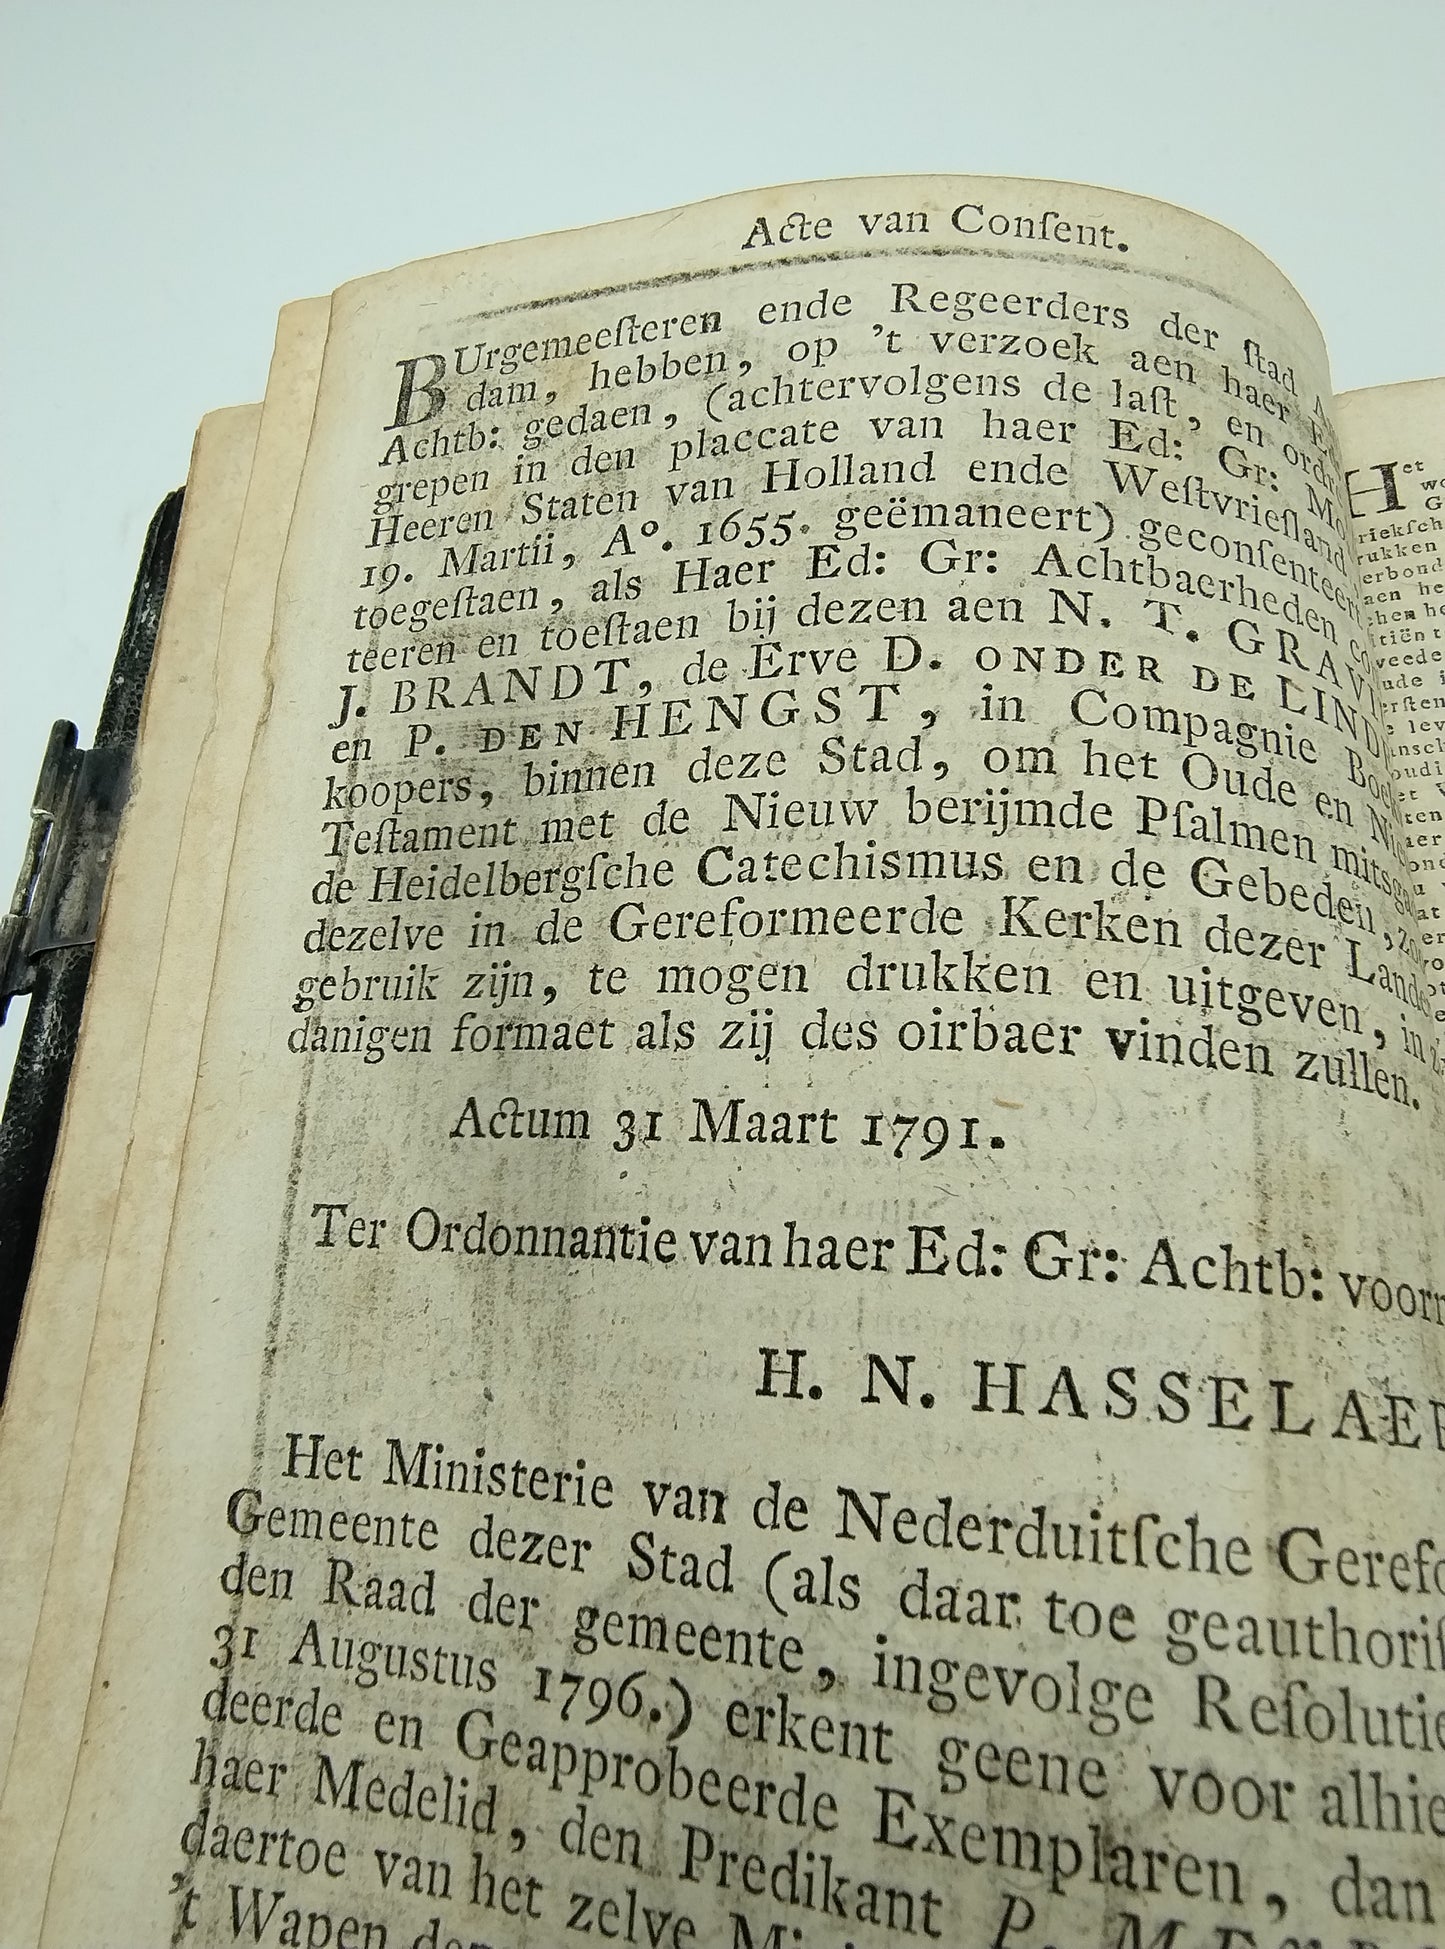 Acte van Conſent.
BUrgemeeſteren ende Regeerders der ſtad
dam, hebben, op 't verzoek aen haer
Achtb: gedaen, (achtervolgens de laſt, en
grepen in den placcate van haer Ed: Gr:
Heeren Staten van Holland ende Weſtvrieſland
19. Martii, A°. 1655. geëmaneert) geconſenteert
toegeſtaen, als Haer Ed: Gr: Achtbaerheden
teeren en toeſtaen bij dezen aen N. T. GRAVI
J. BRANDT, de Erve D. ONDER DE LIND
en P. DEN HENGST, in Compagnie Boek
koopers, binnen deze Stad, om het Oude en
Teſtament met de Nieuw berijmde Pſalmen mitsg
de Heidelbergſche Catechismus en de Gebeden, zo
dezelve in de Gereformeerde Kerken dezer Lande
gebruik zijn, te mogen drukken en uitgeven, in
danigen formaet als zij des oirbaer vinden zullen.
Actum 31 Maart 1791.
Ter Ordonnantie van haer Ed: Gr: Achtb: voorn
H. N. HASSELAER
Het Ministerie van de Nederduitſche Gerefo
Gemeente dezer Stad (als daar toe geauthoriſ
den Raad der gemeente, ingevolge Reſolutie
31 Augustus 1796.) erkent geene voor alhie
deerde en Geapprobeerde Exemplaren, dan
haer Medelid, den Predikant P.
daertoe van het zelve
't Wapen
Het
riekſch
rukken
erbond
aen he
tiën t